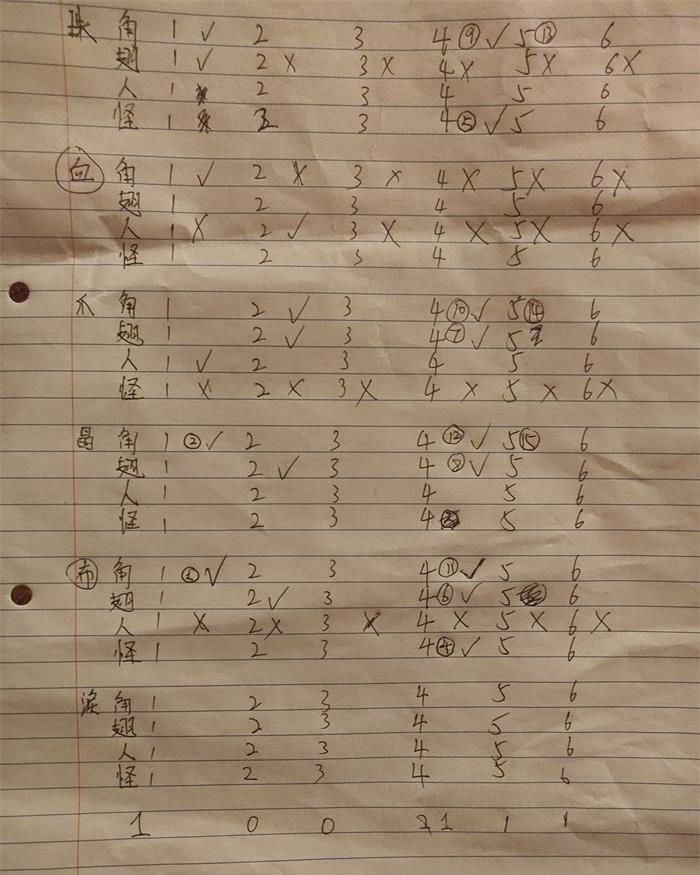 珠 角 1 ✓ 2 3 4 ⑨ ✓ 5 ⑬ 6
翅 1 ✓ 2 × 3 × 4 × 5 × 6 ×
人 1 2 3 4 5 6
怪 1 2 3 4 ⑤ ✓ 5 6
向 角 1 ✓ 2 × 3 × 4 × 5 × 6 ×
翅 1 2 3 4 5 6
人 1 × 2 ✓ 3 × 4 × 5 × 6 ×
怪 1 2 3 4 5 6
爪 角 1 2 ✓ 3 4 ⑩ ✓ 5 ⑭ 6
翅 1 2 ✓ 3 4 ⑦ ✓ 5 6
人 1 ✓ 2 3 4 5 6
怪 1 × 2 × 3 × 4 × 5 × 6 ×
晶 角 1 ② ✓ 2 3 4 ⑫ ✓ 5 ⑮ 6
翅 1 2 ✓ 3 4 ⑧ ✓ 5 6
人 1 2 3 4 5 6
怪 1 2 3 4 5 6
布 角 1 ✓ 2 3 4 ⑪ ✓ 5 6
翅 1 2 ✓ 3 4 ⑥ ✓ 5 6
人 1 × 2 × 3 × 4 × 5 × 6 ×
怪 1 2 3 4 ④ ✓ 5 6
泪 角 1 2 3 4 5 6
翅 1 2 3 4 5 6
人 1 2 3 4 5 6
怪 1 2 3 4 5 6
1 0 0 1 1 1